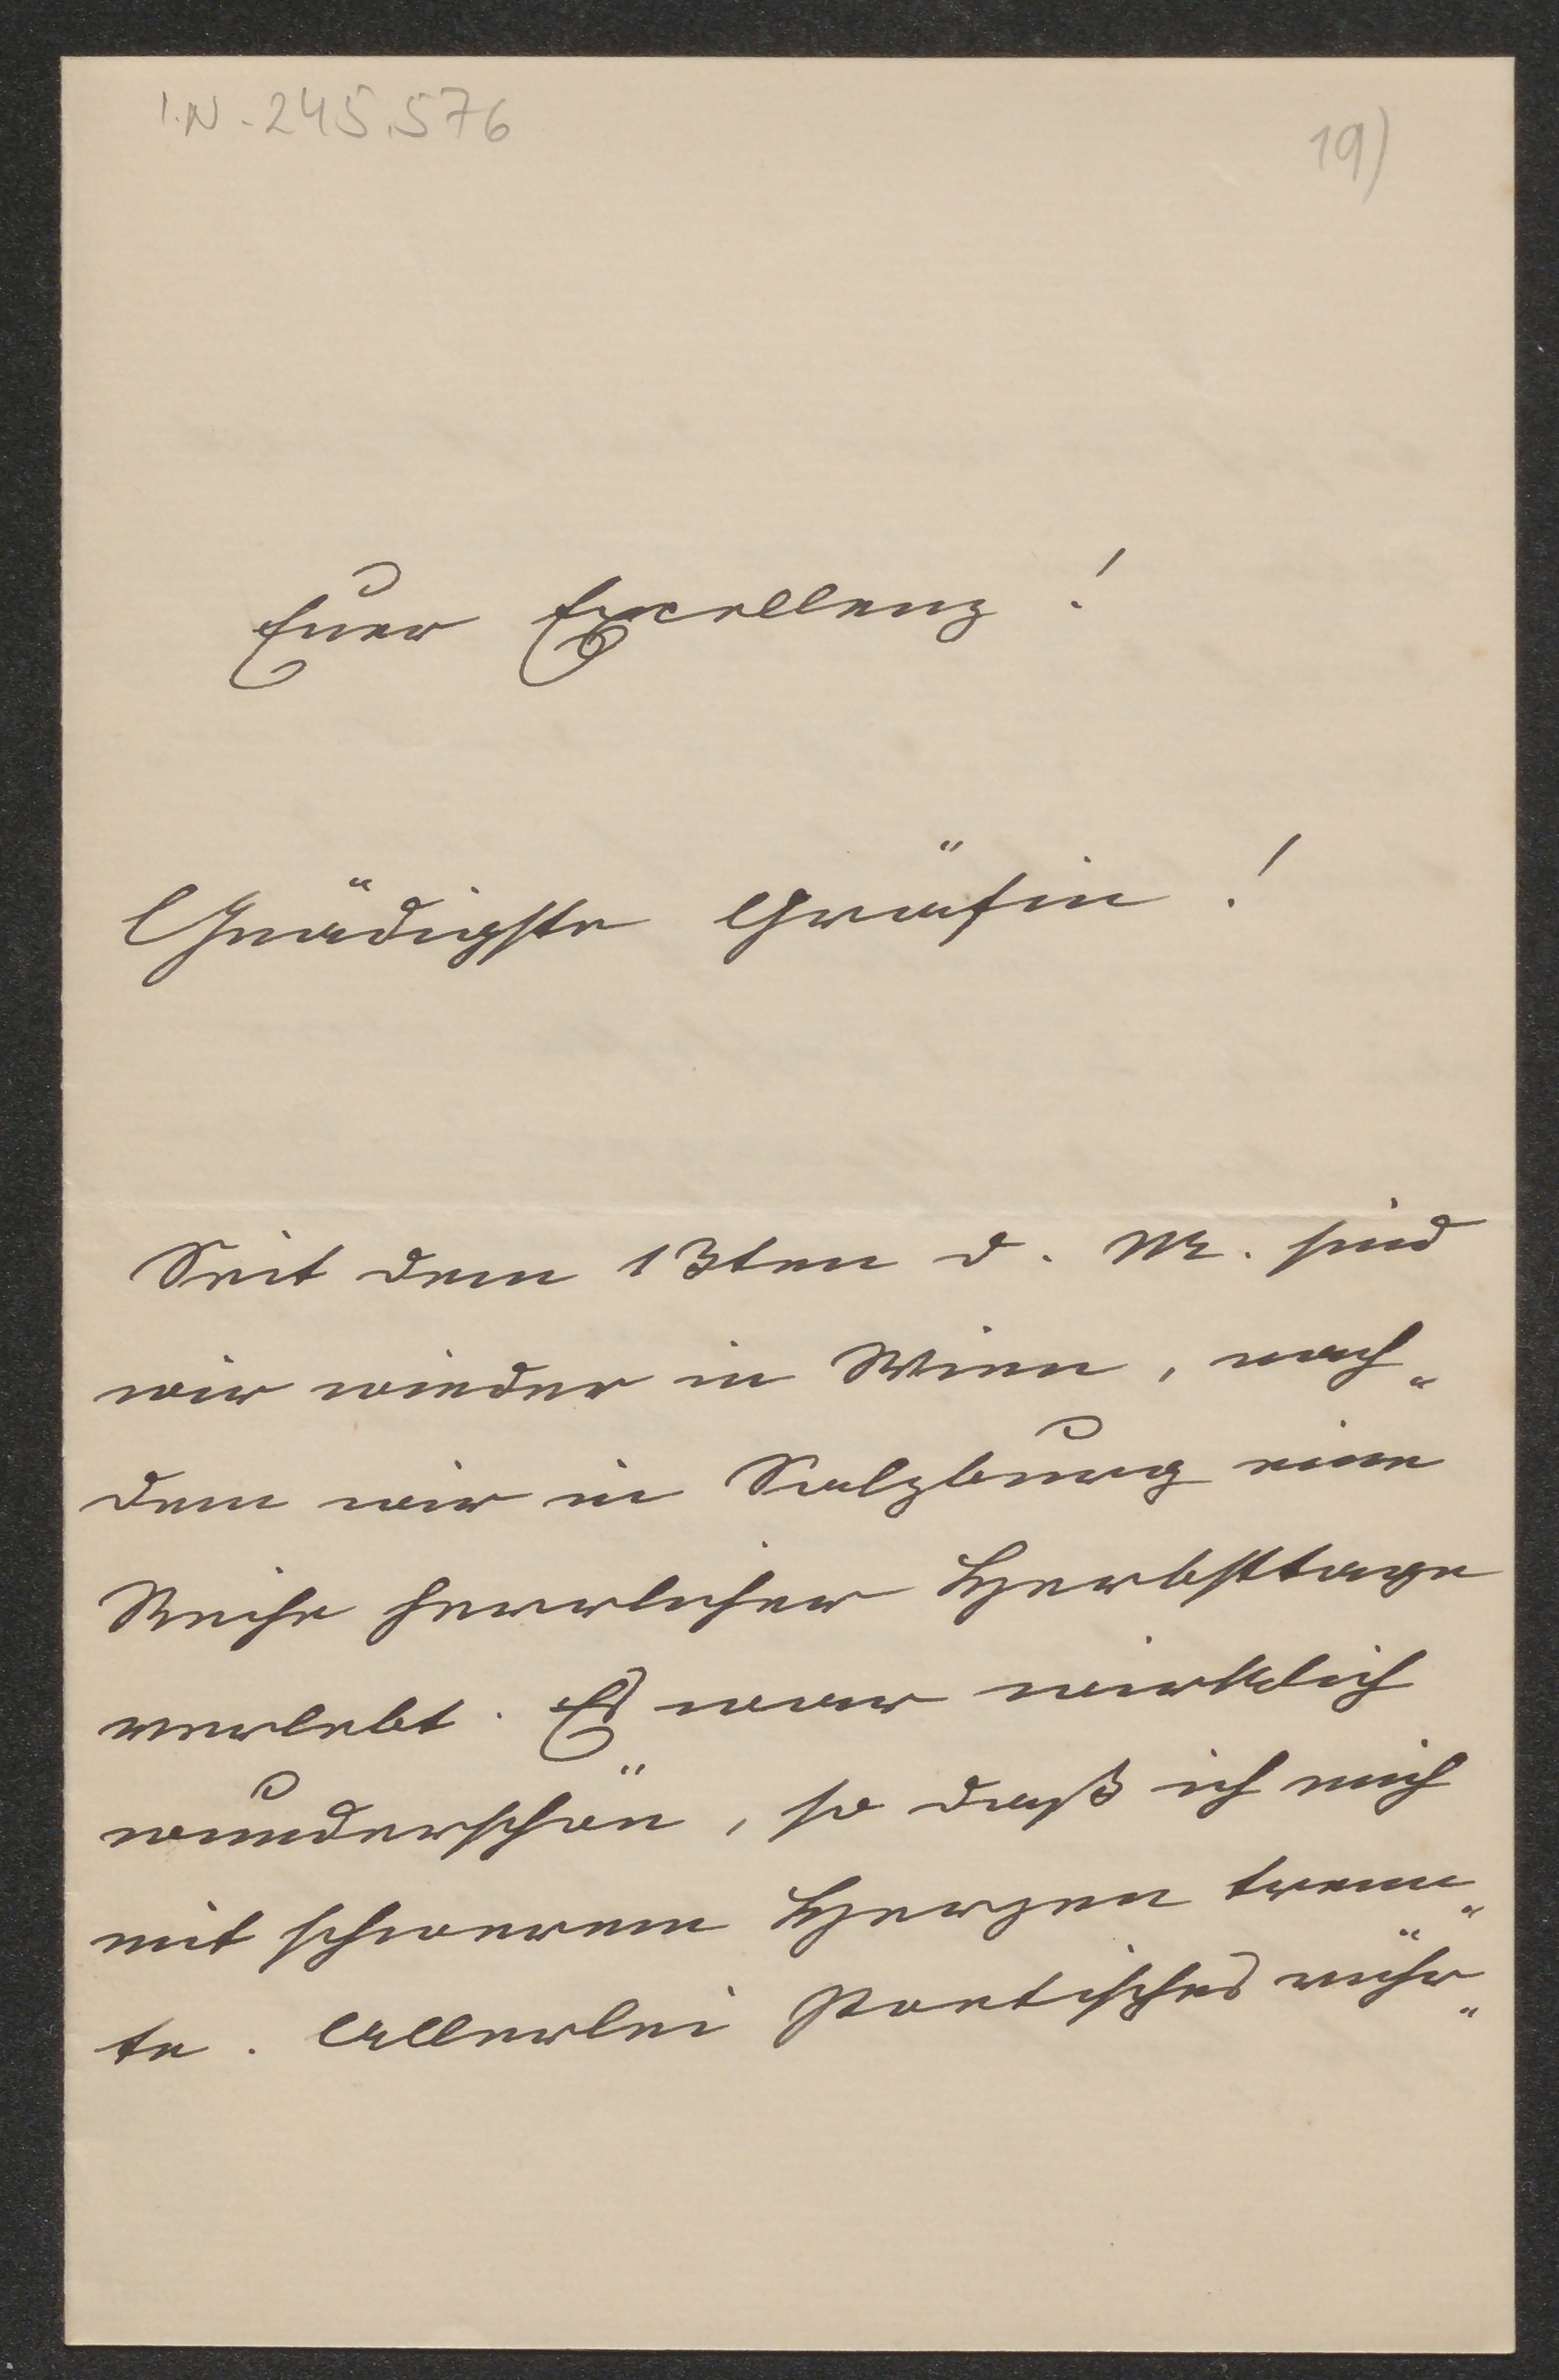 I.N. 245.576
19)
Euer Excellenz!
Gnädigste Gräfin!
Seit dem 13ten d. M. sind
wir wieder in Wien, nach„
dem wir in Salzburg eine
Reihe herrlicher Herbsttage
verlebt. Es war wirklich
wunderschön, so daß ich mich
mit schwerem Herzen trenn„
te. Allerlei Poetisches rühr„